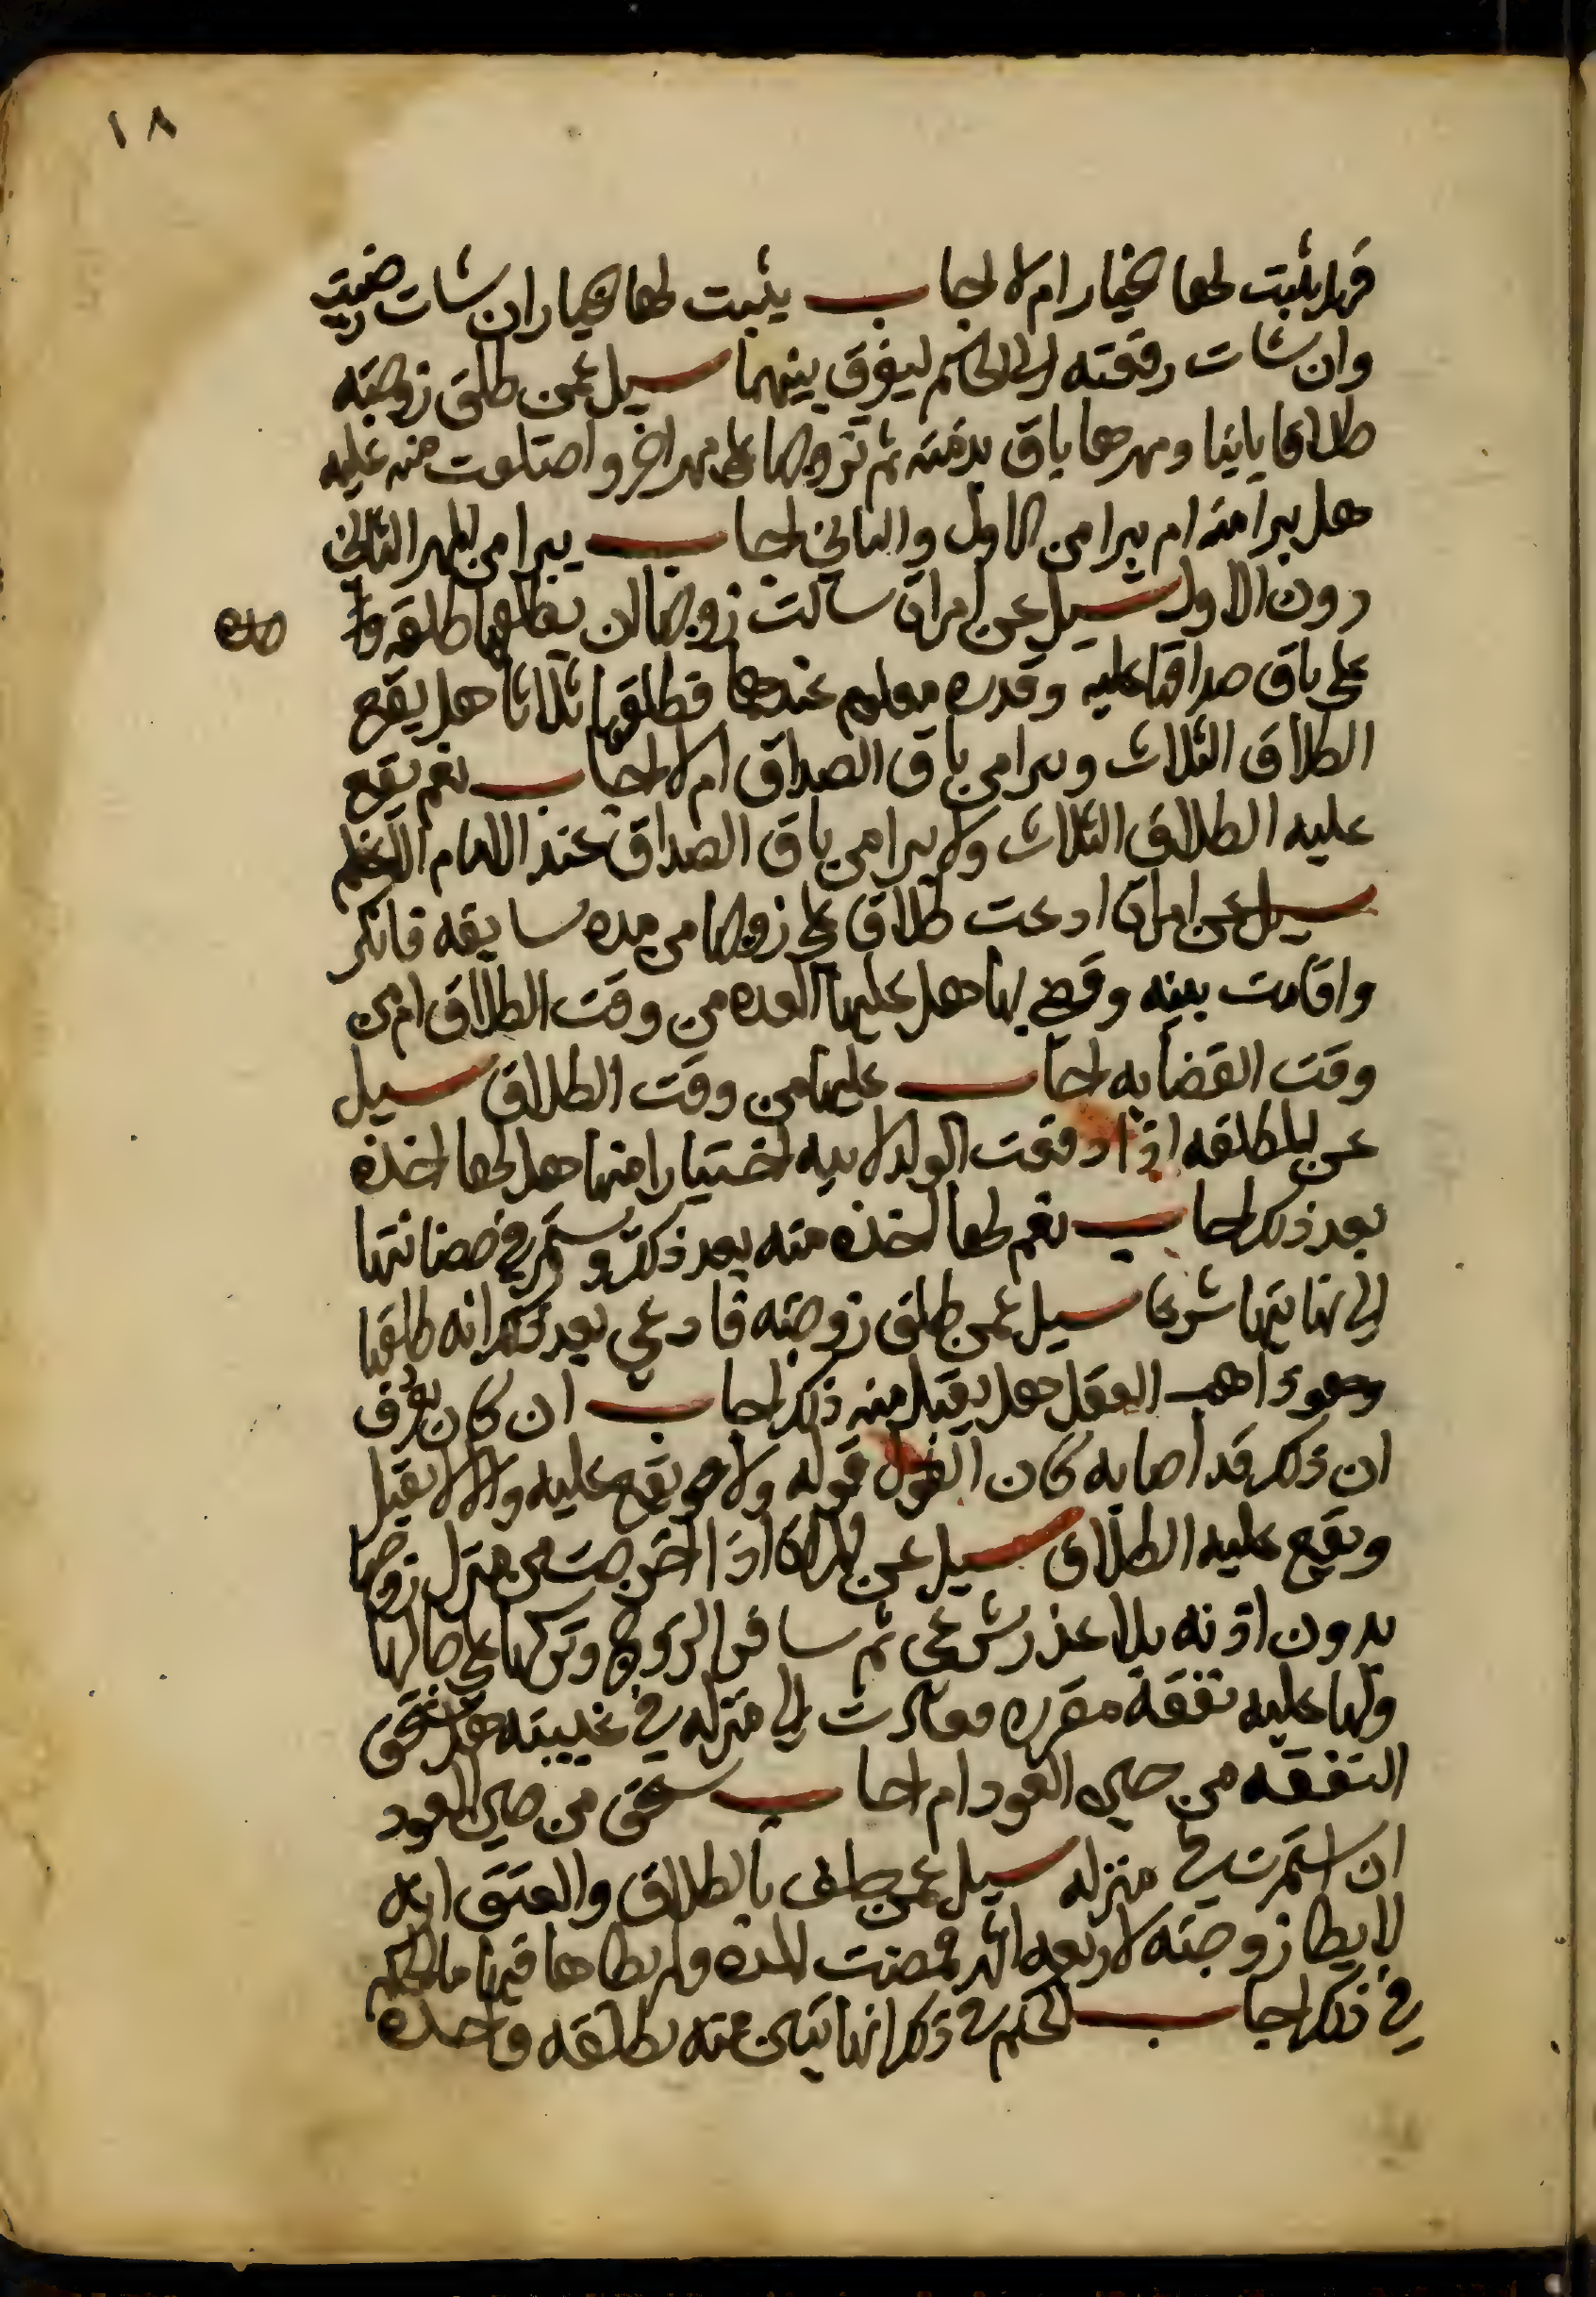 ١٨
فهل يثبت لها الخيار ام لا اجاب يثبت لها الخيار ان شات رضيت
وان شات رفعته الى الحاكم ليفرق بينهما سيل عمن طلق زوجته
طلاقا باينا ومهرها باق بذمته ثم تزوجها على مهر اخر واختلعت منه عليه
هل يبرا منه ام يبرا من الاول والثاني اجاب يبرا من المهر الثاني
دون الاول سيل عن امراة سالت زوجها ان يطلقها طلقة وا حده
على باق صداقها عليه وقدره معلوم عندها فطلقها ثلاثا هل يقع
الطلاق الثلاث ويبرا من باق الصداق ام لا اجاب نعم يقع
عليه الطلاق الثلاث ولا يبرا من باق الصداق عند الامام الاعظم
سيل عن امراة ادعت طلاق على زوجها من مده سابقه فانكر
واقامت بينه وقضي لها هل عليها العده من وقت الطلاق ام من
وقت القضا به اجاب عليها من وقت الطلاق سيل
عن المطلقه اذا دفعت الولد لابيه اختيارا منها هل لها اخذه
بعد ذلك اجاب نعم لها اخذه منه بعد ذلك ويستمر في حضانتها
الى نهايتها شرعا سيل عمن طلق زوجته فادعى بعد ذلك انه طلقها
وهو ذاهب العقل هل يقبل منه ذلك اجاب ان كان يعرف
ان ذلك قد اصابه كان القول قوله ولا يقع عليه والا لا يقبل
ويقع عليه الطلاق سيل عن المراة اذا خرجت من منزل زوجها
بدون اذنه بلا عذر شرعي ثم سافر الزوج وتركها على حالها
ولها عليه نفقة مقرره فعادت الى منزله في غيبته هل تستحق
النفقه من حين العود ام اجاب تستحق من حين العود
ان استمرت في منزله سيل عمن حلف بالطلاق والعتق انه
لا يطا زوجته لاربعه اشهر فمضت المده ولم يطاها فيها ما الحكم
في ذلك اجاب الحكم في ذلك انها تبين منه بطلقه واحده